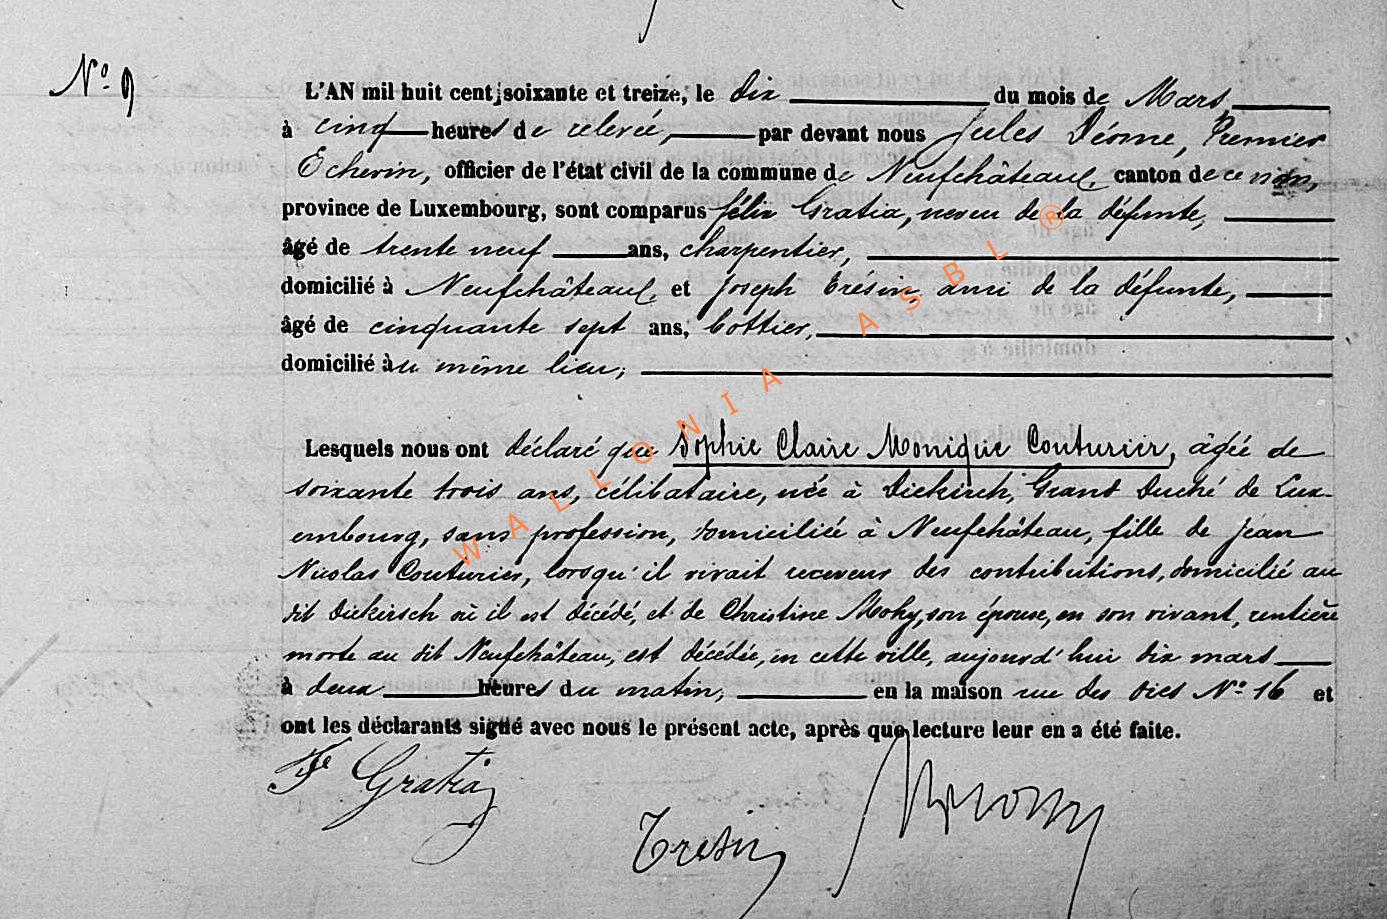 Nº 9
L'AN mil huit cent soixante et treize, le dix du mois de Mars
à cinq heures de relevée, par devant nous Jules Déome, Premier
Echevin, officier de l'état civil de la commune de Neufchâteau, canton de ce nom,
province de Luxembourg, sont comparus félix Gratia, neveu de la défunte,
âgé de trente neuf ans, charpentier,
domicilié à Neufchâteau, et Joseph Trésin, ami de la défunte,
âgé de cinquante sept ans, bottier,
domicilié au même lieu;
Lesquels nous ont déclaré que Sophie Claire Monique Couturier, âgée de
soixante trois ans, célibataire, née à Diekirch, Grand Duché de Lux-
embourg, sans profession, domiciliée à Neufchâteau, fille de Jean
Nicolas Couturier, lorsqu'il vivait receveur des contributions, domicilié au
dit Diekirsch où il est décédé, et de Christine Mohy, son épouse, en son vivant, rentière
morte au dit Neufchâteau, est décédée, en cette ville, aujourd'hui dix mars
à deux heures du matin, en la maison rue des Nº 16 et
ont les déclarants signé avec nous le présent acte, après que lecture leur en a été faite.
Gratia
Tresin
WALLONIA ASBL ®